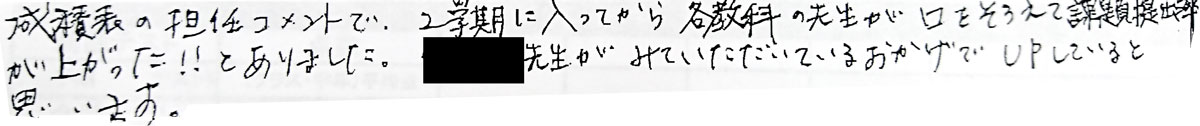 成積表の担任コメントで、2学期に入ってから各教科の先生が口をそろえて課題提出率
が上がった!!とありました。先生がみていただいているおかげでUPしていると
思います。